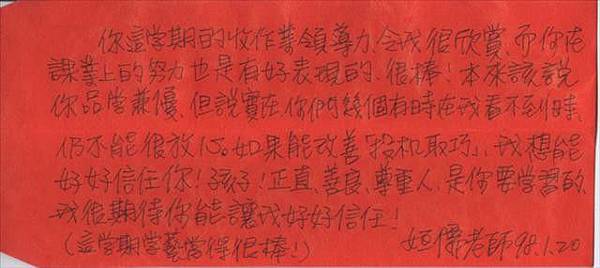 你這學期的收作業領導力,令我很欣賞,而你在
課業上的努力也是有好表現的,很棒!本來該說
你品學兼優,但說實在,你們幾個有時在我看不到時,
仍不能很放心。如果能改善「投机取巧」,我想能
好好信任你!孩子!正直、善良、尊重人,是你要學習的,
我很期待你能讓我好好信任!
(這學期學藝當得很棒!) 老師98.1.20